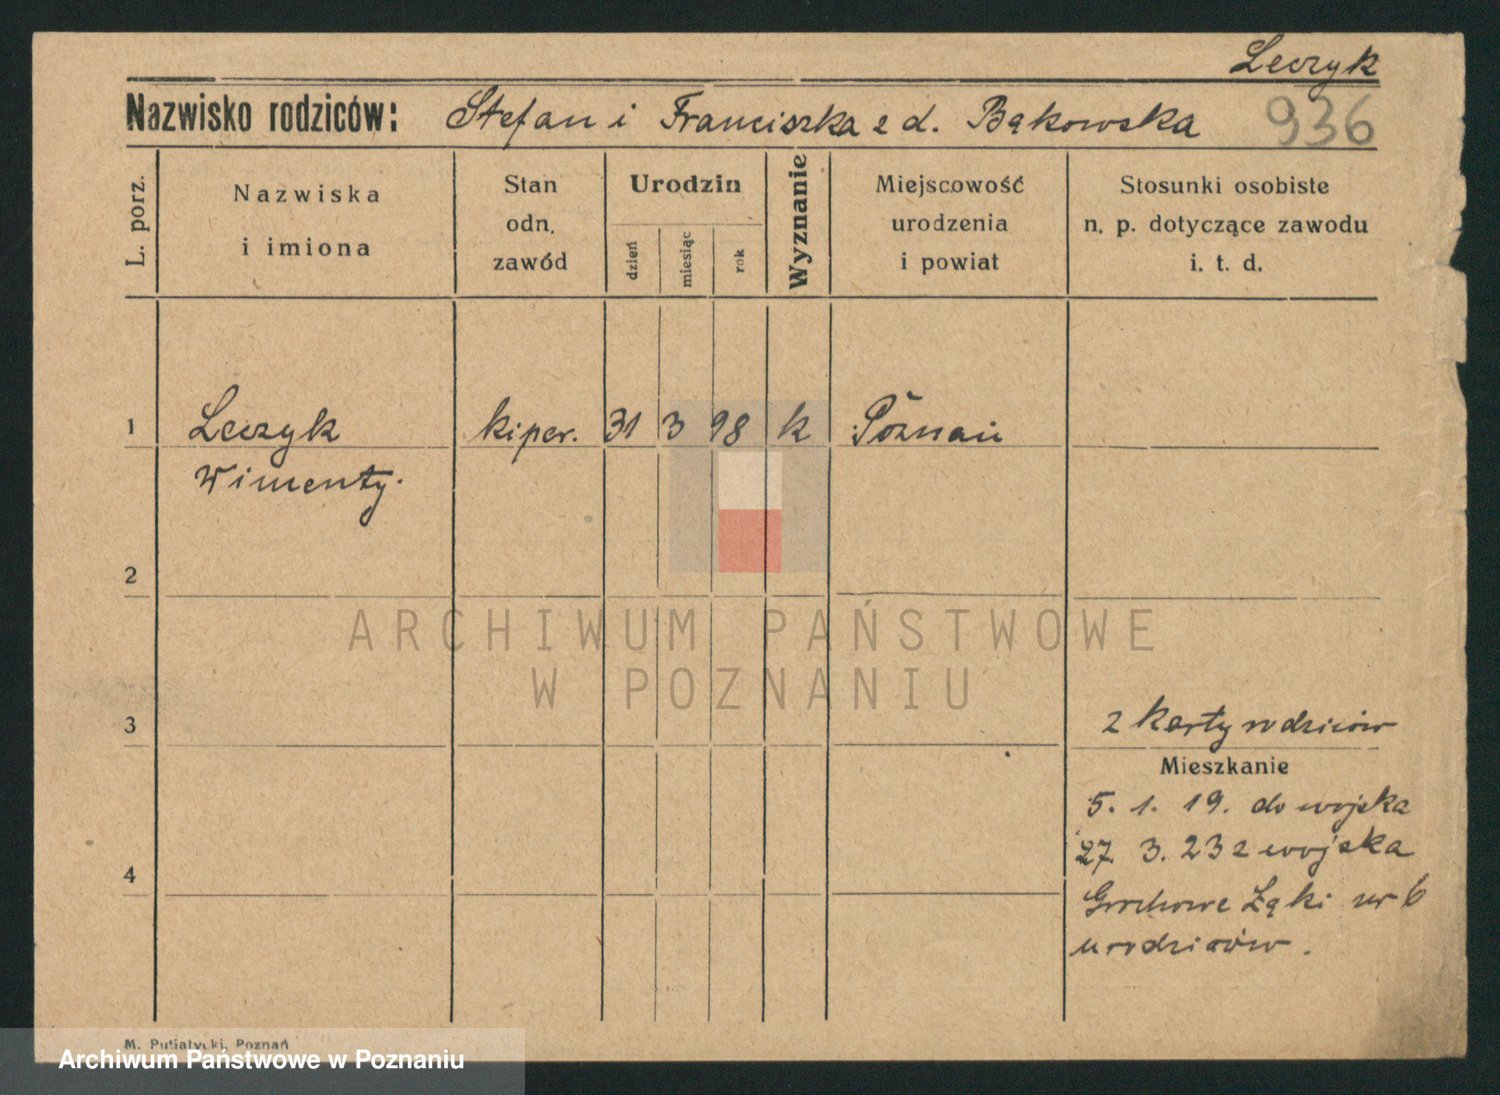 Leczyk
Nazwisko rodziców: Stefan i Franciszka z d. Bąkowska 936
L. porz.
Nazwiska
i imiona
Stan
odn.
zawód
Urodzin
dzień
miesiąc
rok
Wyznanie
Miejscowość
urodzenia
i powiat
Stosunki osobiste
n. p. dotyczące zawodu
i. t. d.
1 Leczyk kiper. 31 3 98 k Poznań
Wincenty.
2
ARCHIWUM PAŃSTWOWE
W POZNANIU
3 z karty rodziców
Mieszkanie
5. 1. 19. do wojska
27. 3. 23 z wojska
4
Grochowe Łąki nr 6
u rodziców.
M. Putiatycki, Poznań
Archiwum Państwowe w Poznaniu